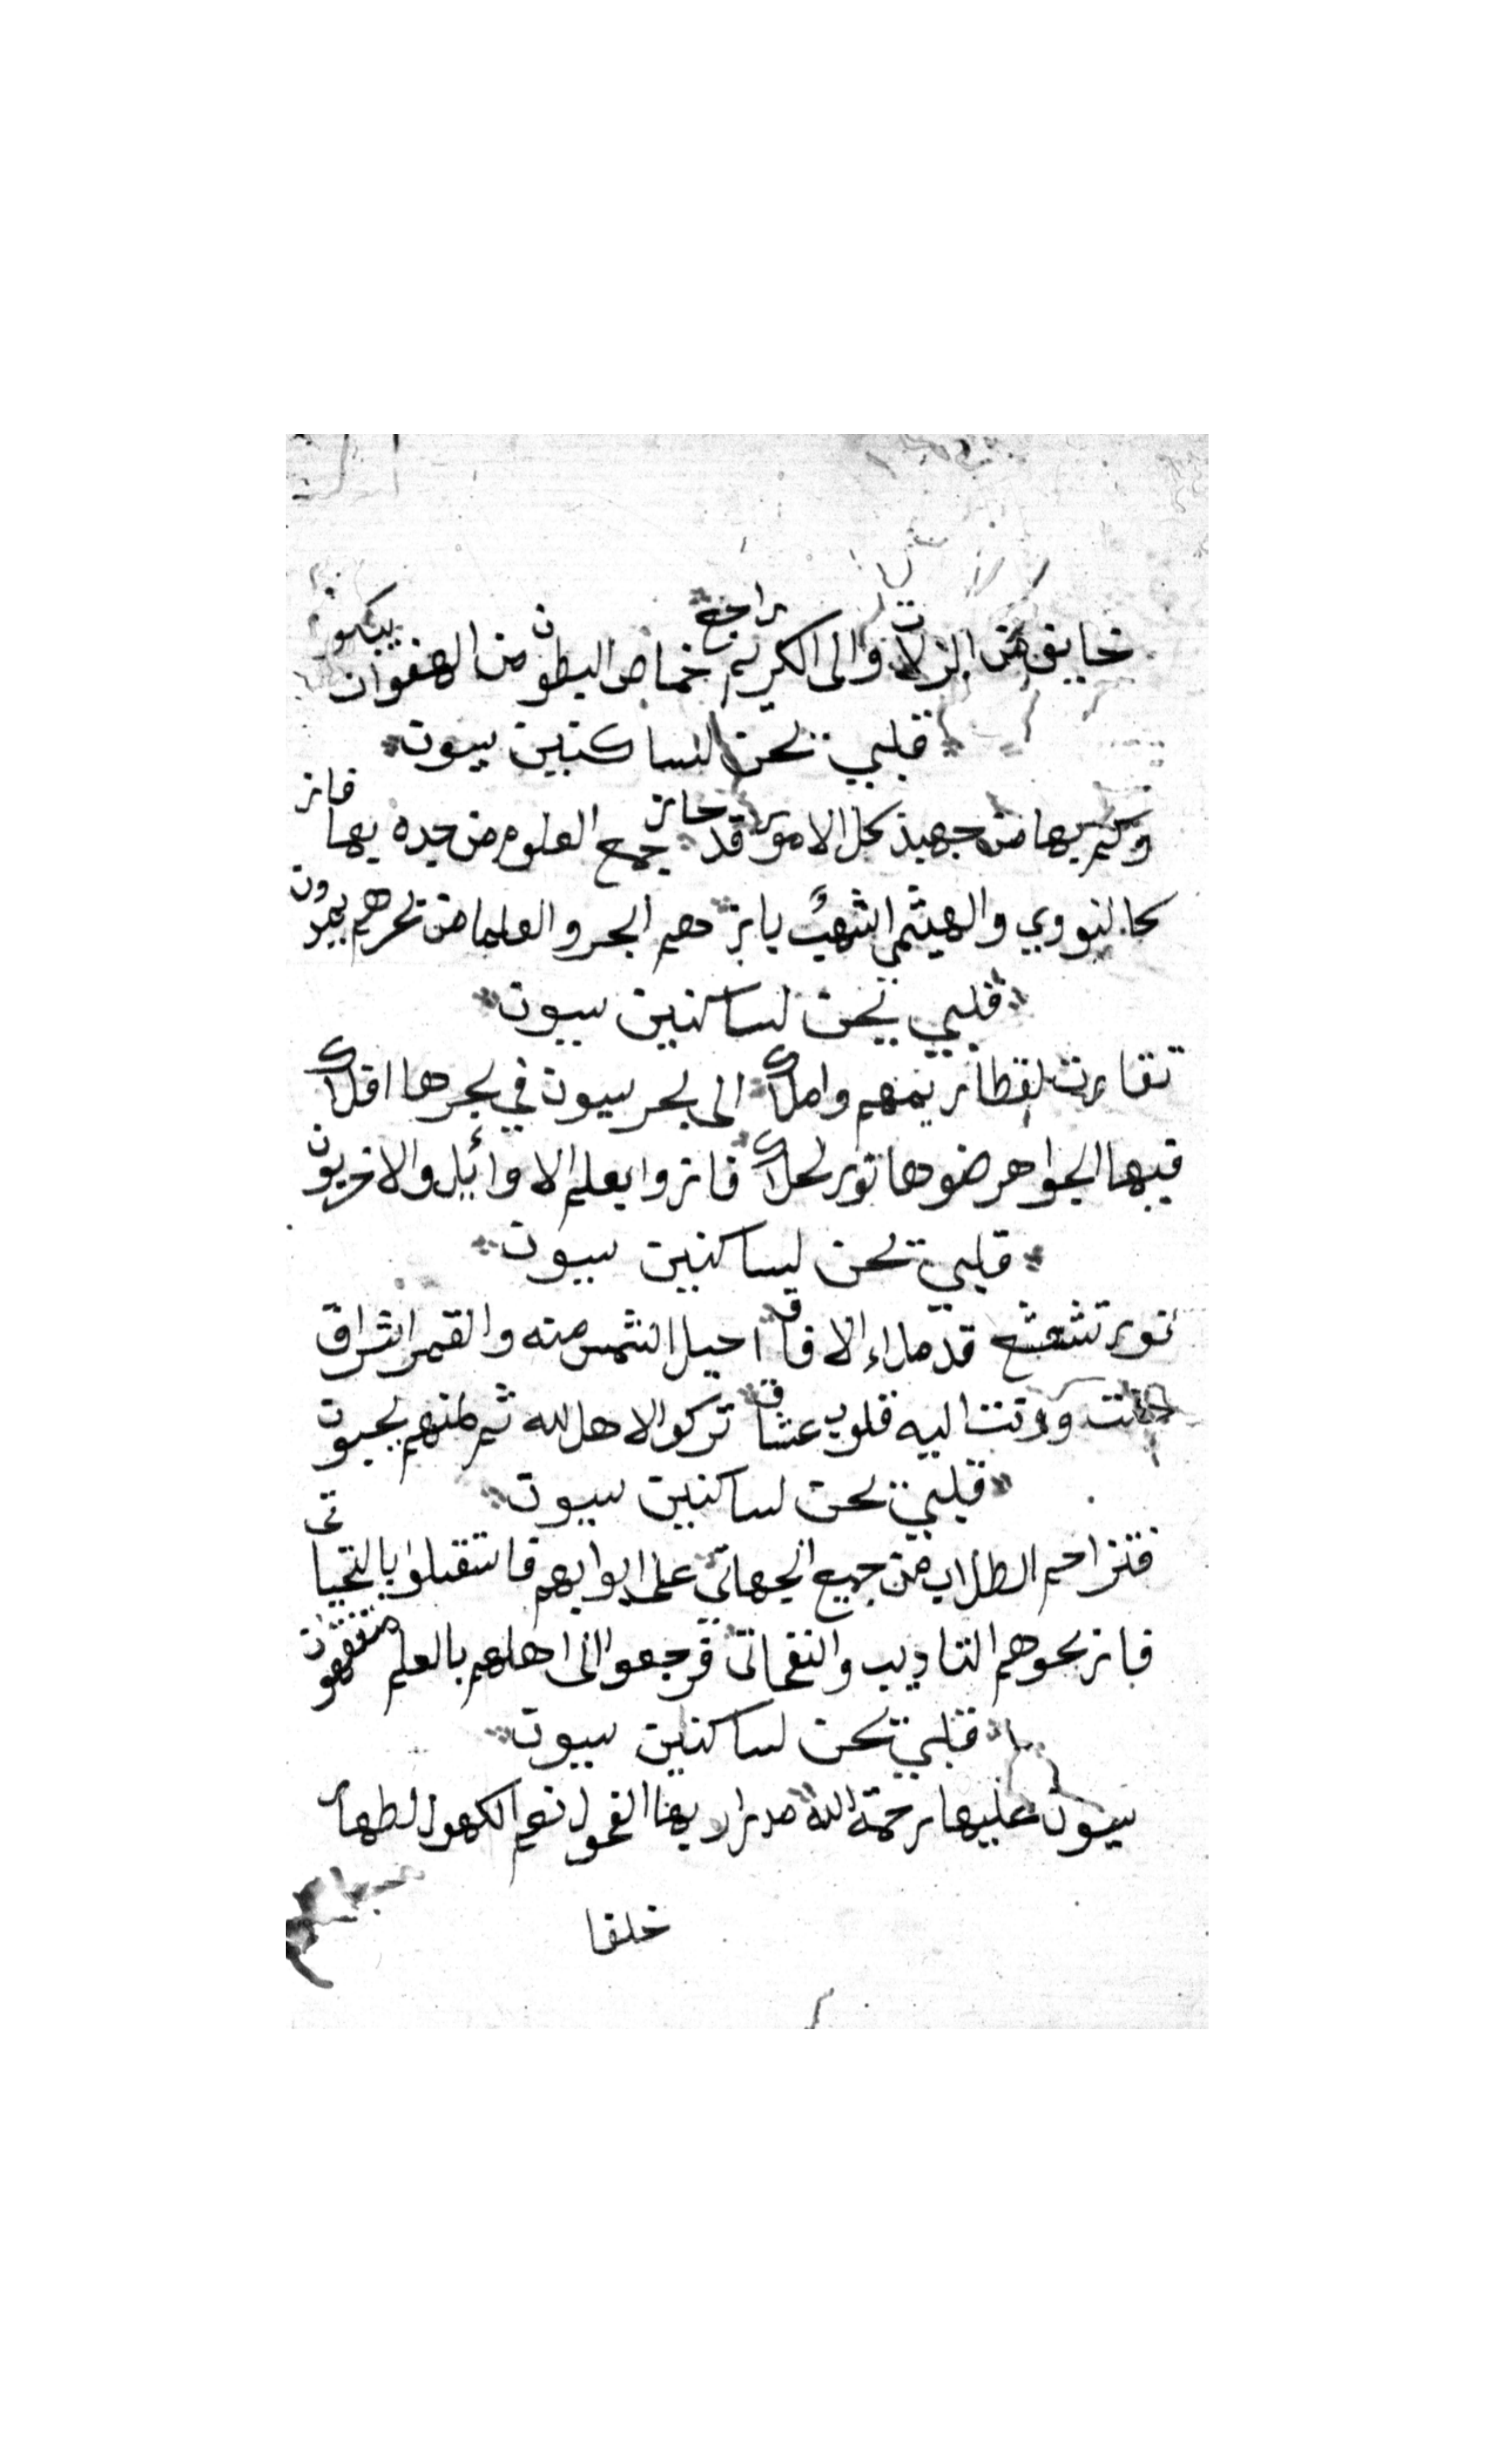 خايف من الزلات والى الكريم راجع خماص البطون من الهفوات يبكو
قلبي تحن لساكنين سيون
وكم بها من جهبذ كل الامور قد حائز جمع العلوم من جده بها فائز
كالنووي والهيثمي الشهب يابز دهم البحر والعلما من بحرهم يردون
قلبي تحن لساكنين سيون
تقاربت لقطار يمنهم واملاك الى بحر سيون في بحرها افلاك
فيها الجواهر ضوها نور لحلاك فازوا بعلم الاوائيل والاخريون
قلبي تحن لساكنين سيون
نور تشعشع قد ملاء الافاق احيل الشمس منه والقمر اشراق
حنت ورنت اليه قلوب عشاق تركوا الاهل لله ثم منهم يحبون
قلبي تحن لساكنين سيون
فتزاحم الطلاب من جميع الجهاتي على ابوابهم فاستقبلوا بالتحياتي
فازبحوهم التاديب والنفحاتي فرجعوا الى اهلهم بالعلم متفقهون
قلبي تحن لساكنين سيون
سيون عليها رحمة الله مدرار بها الفحول نعم الكهول اطهار
خلفا